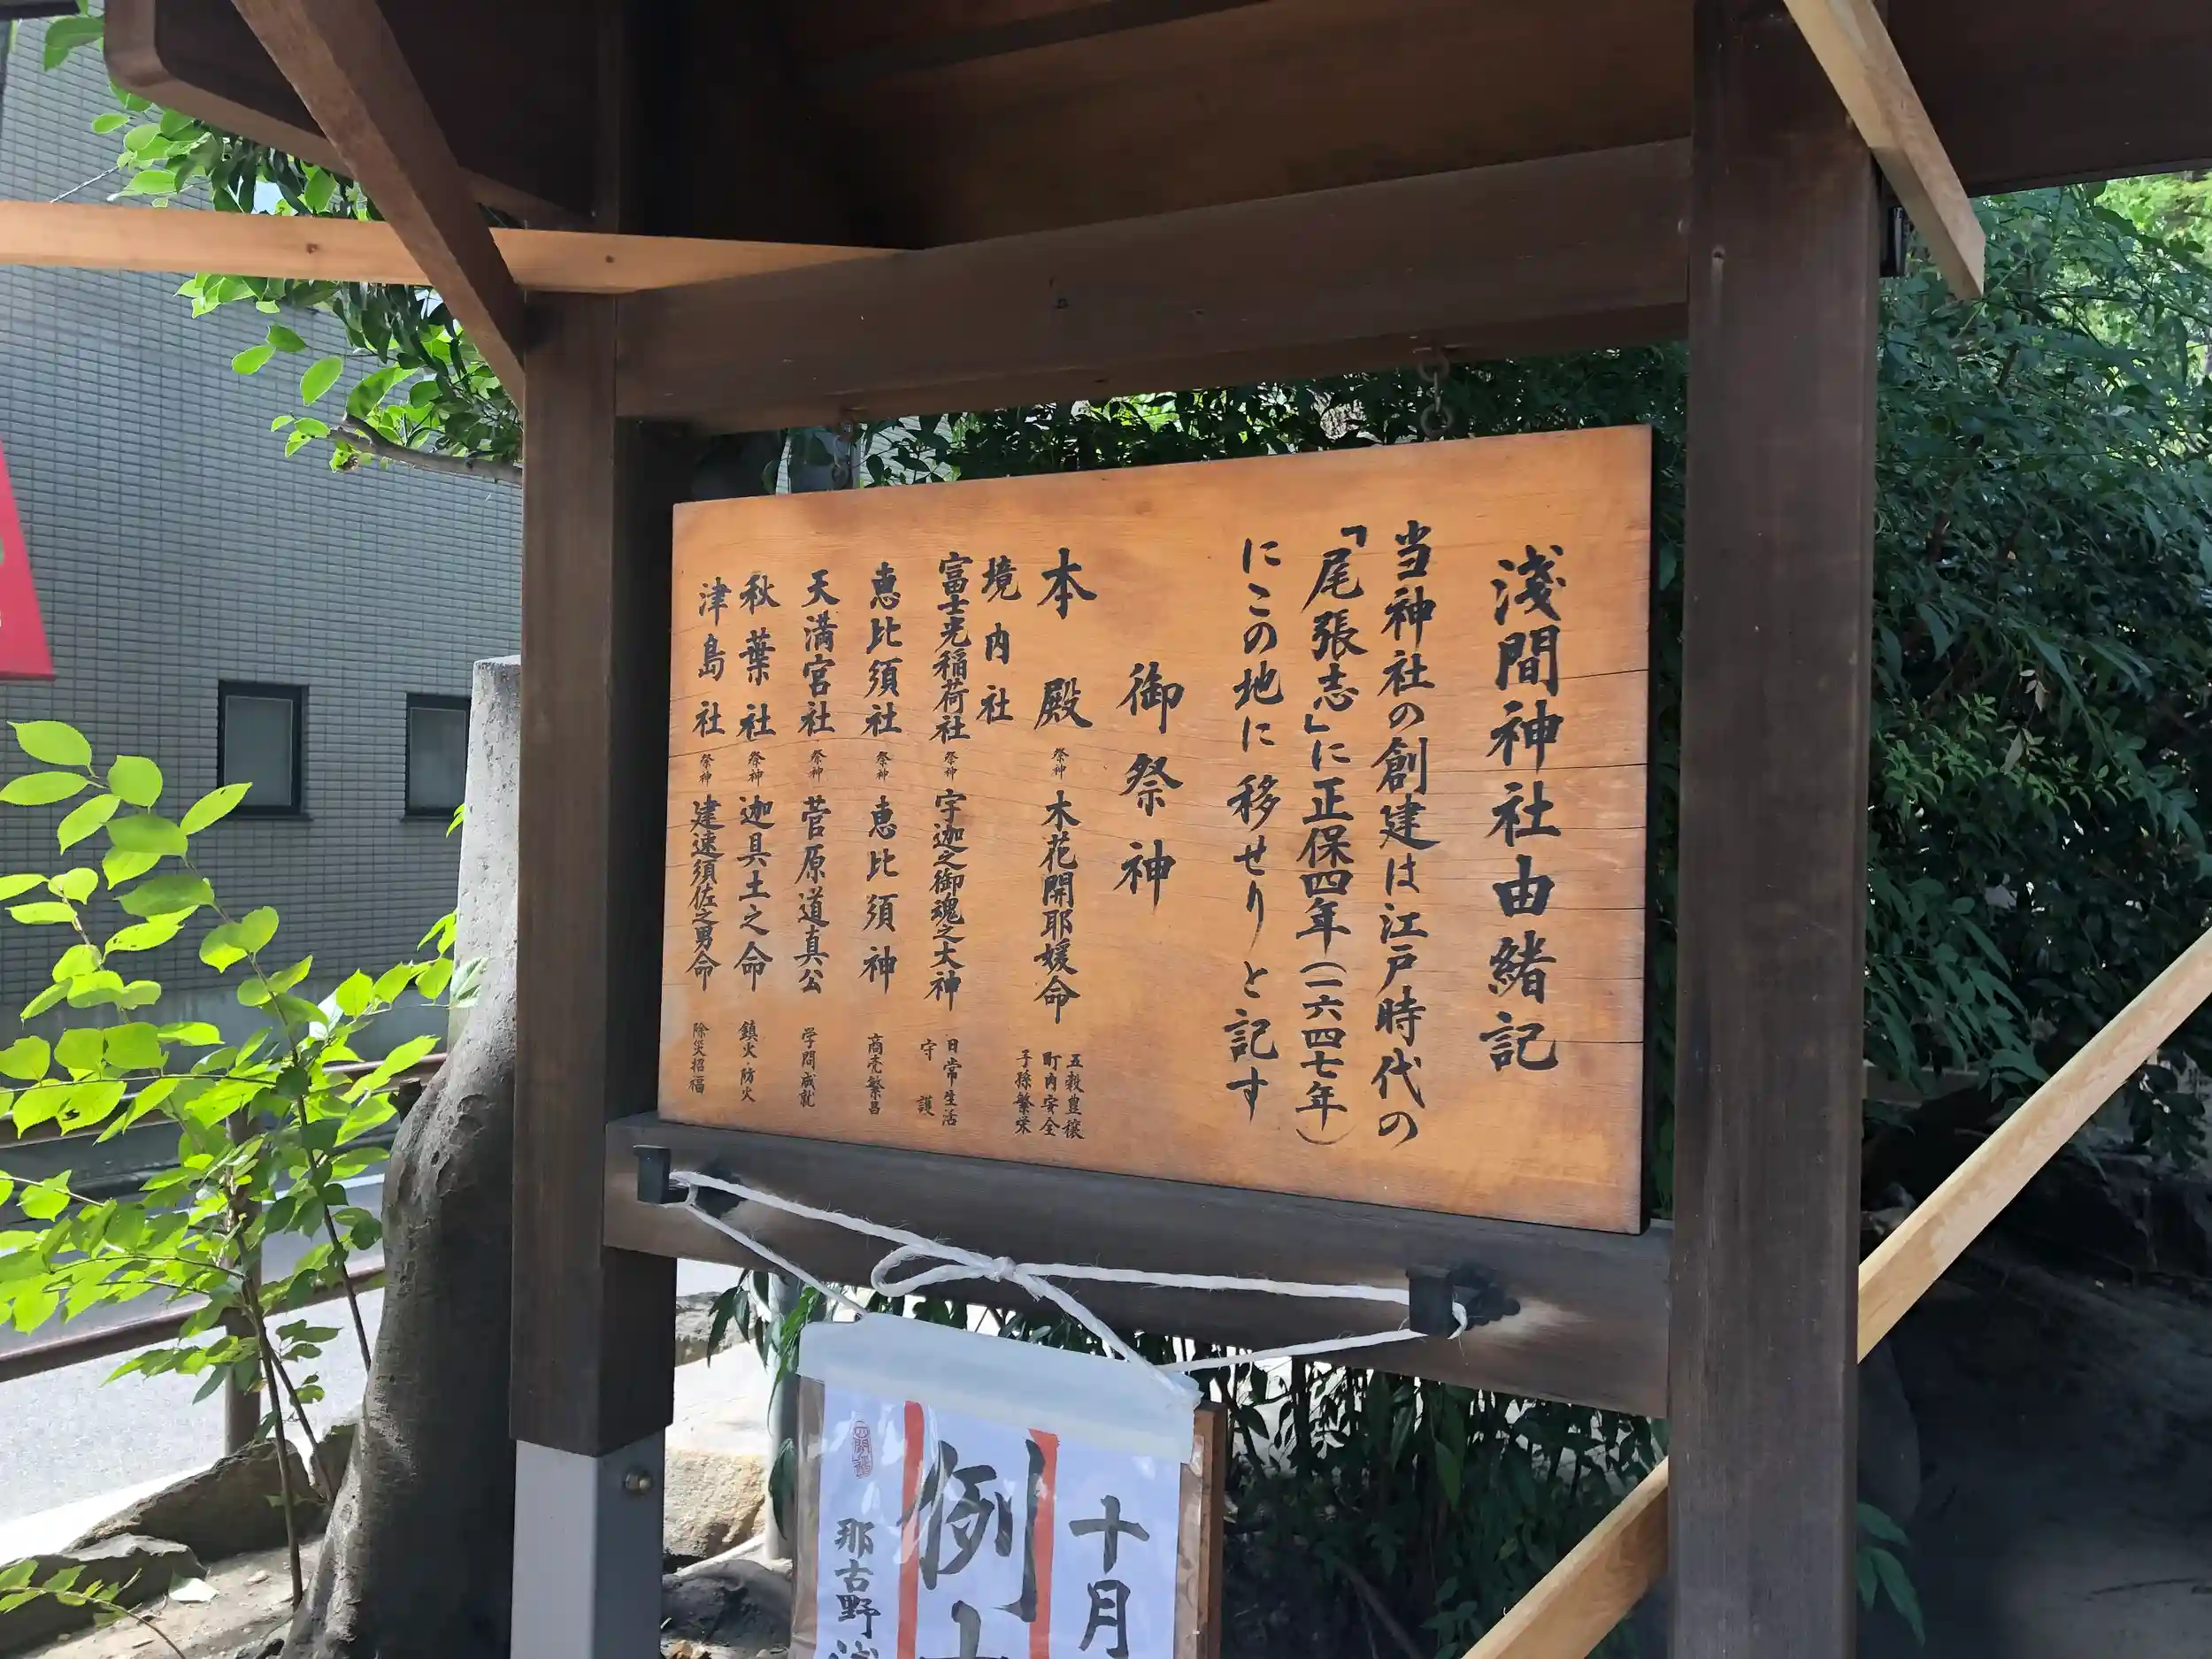 淺間神社由緒記
当神社の創建は江戸時代の
「尾張志」に正保四年(一六四七年)
にこの地に移せりと記す
御祭神
本殿 祭神 木花開耶媛命 五穀豊穣 町内安全 子孫繁栄
境内社
富士光稲荷社 祭神 宇迦之御魂之大神 日常生活守護
恵比須社 祭神 恵比須神 商売繁昌
天満宮社 祭神 菅原道真公 学問成就
秋葉社 祭神 迦具土之命 鎮火・防火
津島社 祭神 建速須佐之男命 除災招福
十月
例
那古野